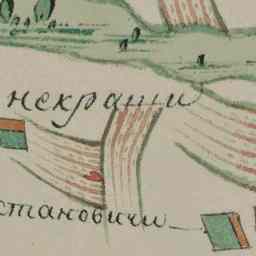 некраши
становичи